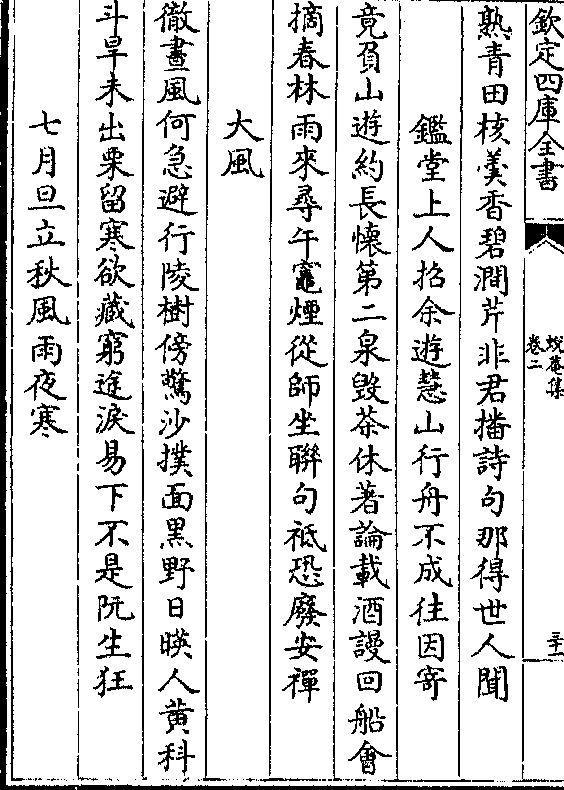 欽定四庫全書
蛻菴集
卷二
三十一
熟青田核羮香碧澗芹非君播詩句那得世人聞
鑑堂上人招余遊慧山行舟不成往因寄
竟負山遊約長懐第二泉毀茶休著論載酒謾回船會
摘春林雨來尋午竈煙從師坐聨句祗恐廢安禪
大風
徹晝風何急避行陵樹傍驚沙撲面黒野日暎人黄科
斗旱未出栗留寒欲藏窮途淚易下不是阮生狂
七月旦立秋風雨夜寒